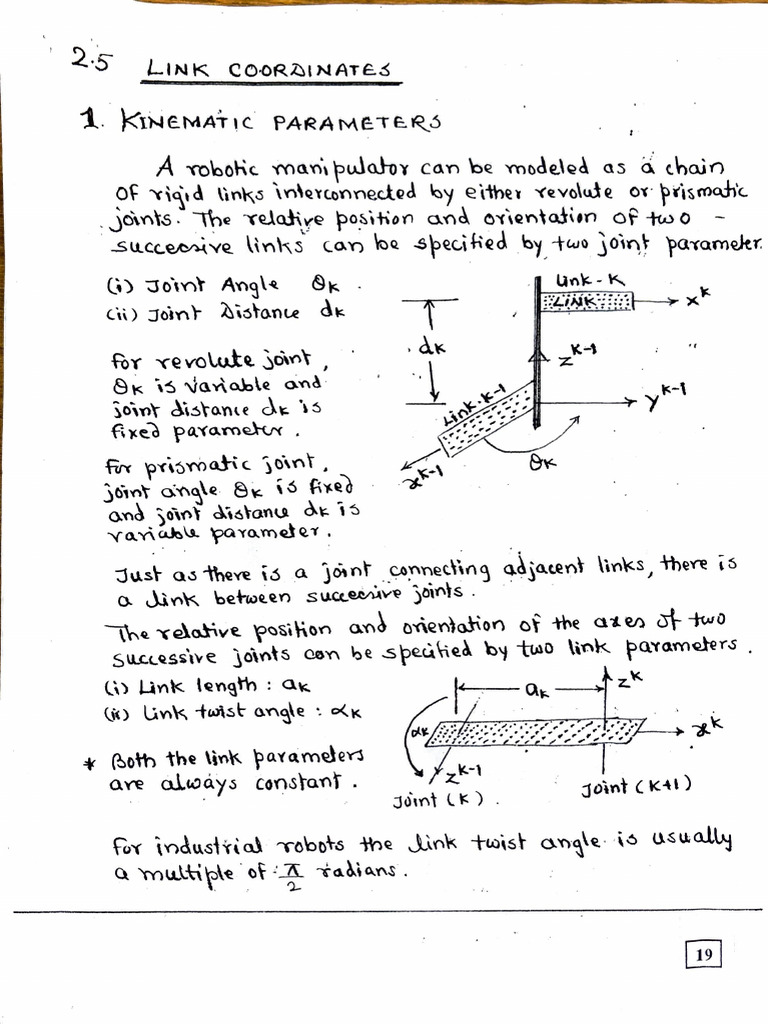 2.5 LINK COORDINATES
1. KINEMATIC PARAMETERS
A robotic manipulator can be modeled as a chain
of rigid links interconnected by either revolute or prismatic
joints. The relative position and orientation of two -
successive links can be specified by two joint parameter.
(i) Joint Angle θK.
(ii) Joint Distance dK
Link-K
LINK
x^K
dK
z^K-1
Link-K-1
y^K-1
x^K-1
θK
For revolute joint,
θK is variable and
joint distance dK is
fixed parameter.
For prismatic joint,
joint angle θK is fixed
and joint distance dK is
variable parameter.
Just as there is a joint connecting adjacent links, there is
a link between successive joints.
The relative position and orientation of the axes of two
successive joints can be specified by two link parameters.
(i) Link length : aK
(ii) Link twist angle : αK
* Both the link parameters
are always constant.
aK
z^K
αK
x^K
z^K-1
Joint (K).
Joint (K+1)
For industrial robots the link twist angle is usually
a multiple of π/2 radians.
19